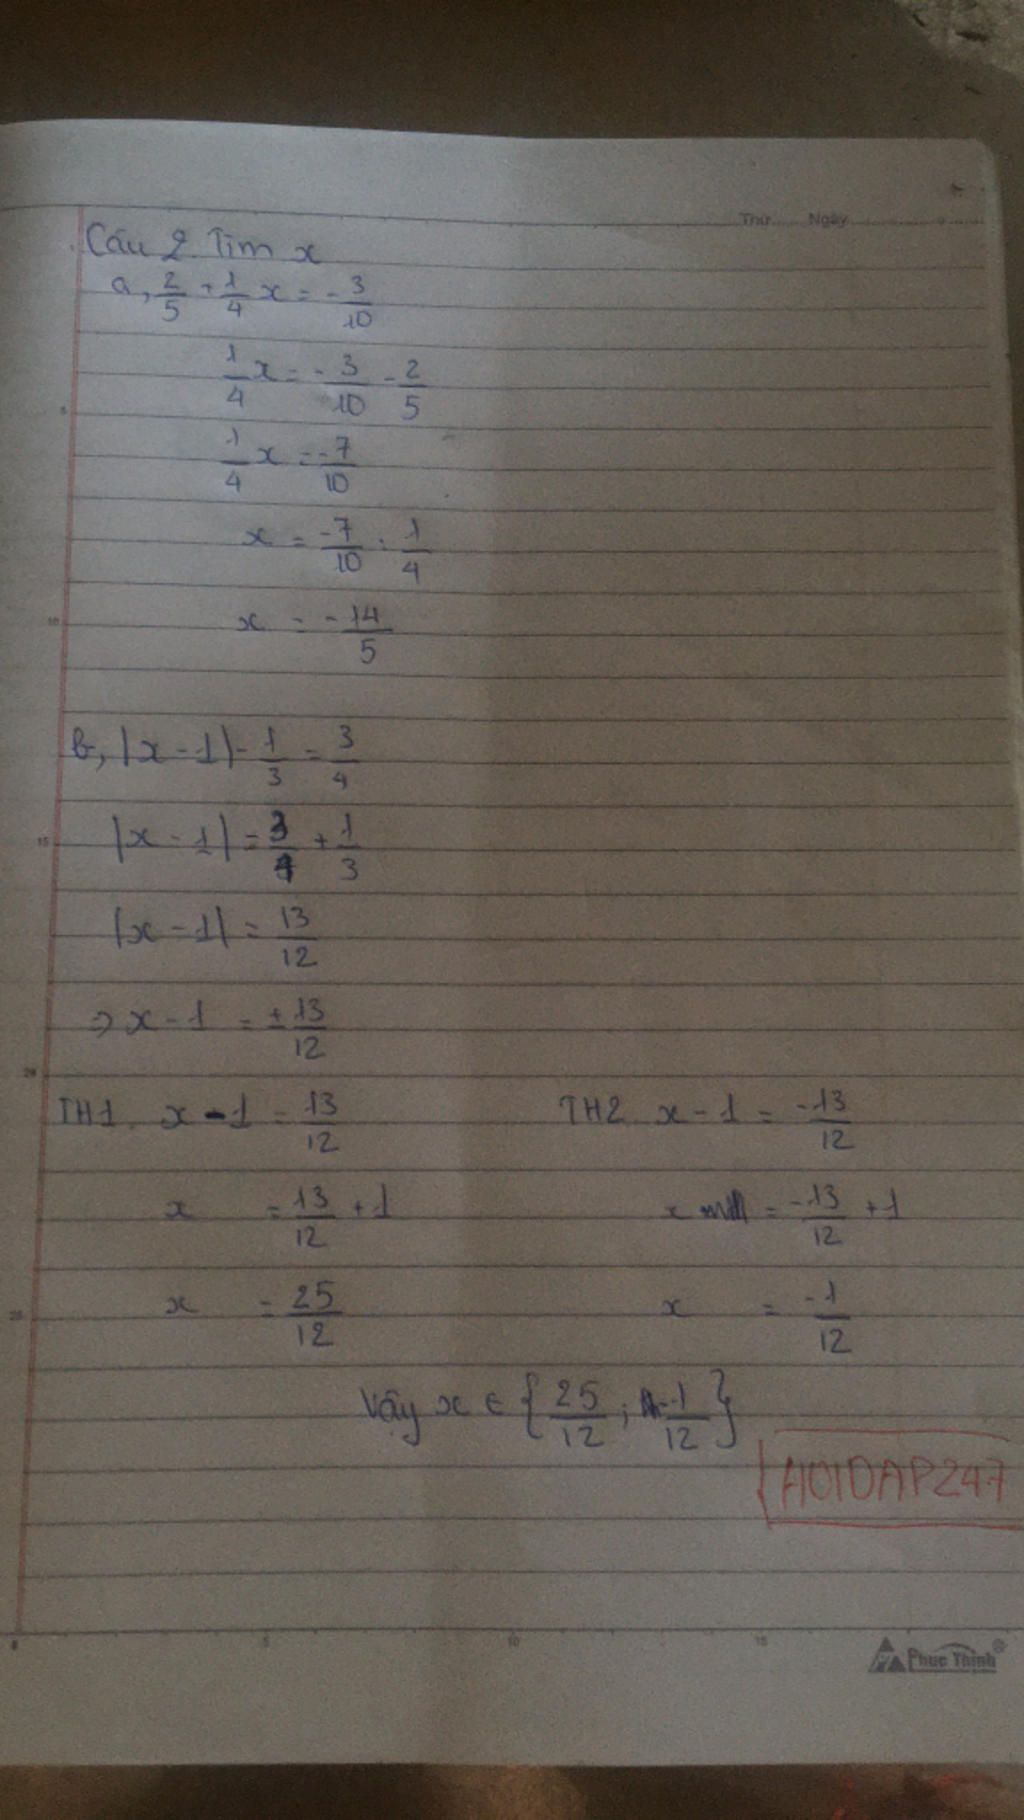 Thứ Ngày
Câu 2. Tìm x
a, 2/5 + 1/4 x = -3/10
1/4 x = -3/10 - 2/5
1/4 x = -7/10
x = -7/10 : 1/4
x = -14/5
b, |x - 1| - 1/3 = 3/4
|x - 1| = 3/4 + 1/3
|x - 1| = 13/12
⇒ x - 1 = ± 13/12
TH1. x - 1 = 13/12
x = 13/12 + 1
x = 25/12
TH2. x - 1 = -13/12
x = -13/12 + 1
x = -1/12
Vậy x ∈ {25/12 ; -1/12}
HOIDAP247
Phuc Thinh®
5
10
15
20
25
0
5
10
15